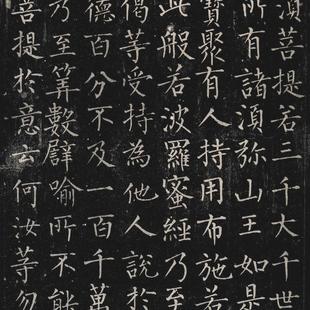 湏菩提若三千大千世
所有諸湏弥山王如是
寶聚有人持用布施若
此般若波羅蜜經乃至
偈等受持為他人說於
德百分不及一百千萬
乃至筭數譬喻所不能
菩提於意云何汝等勿